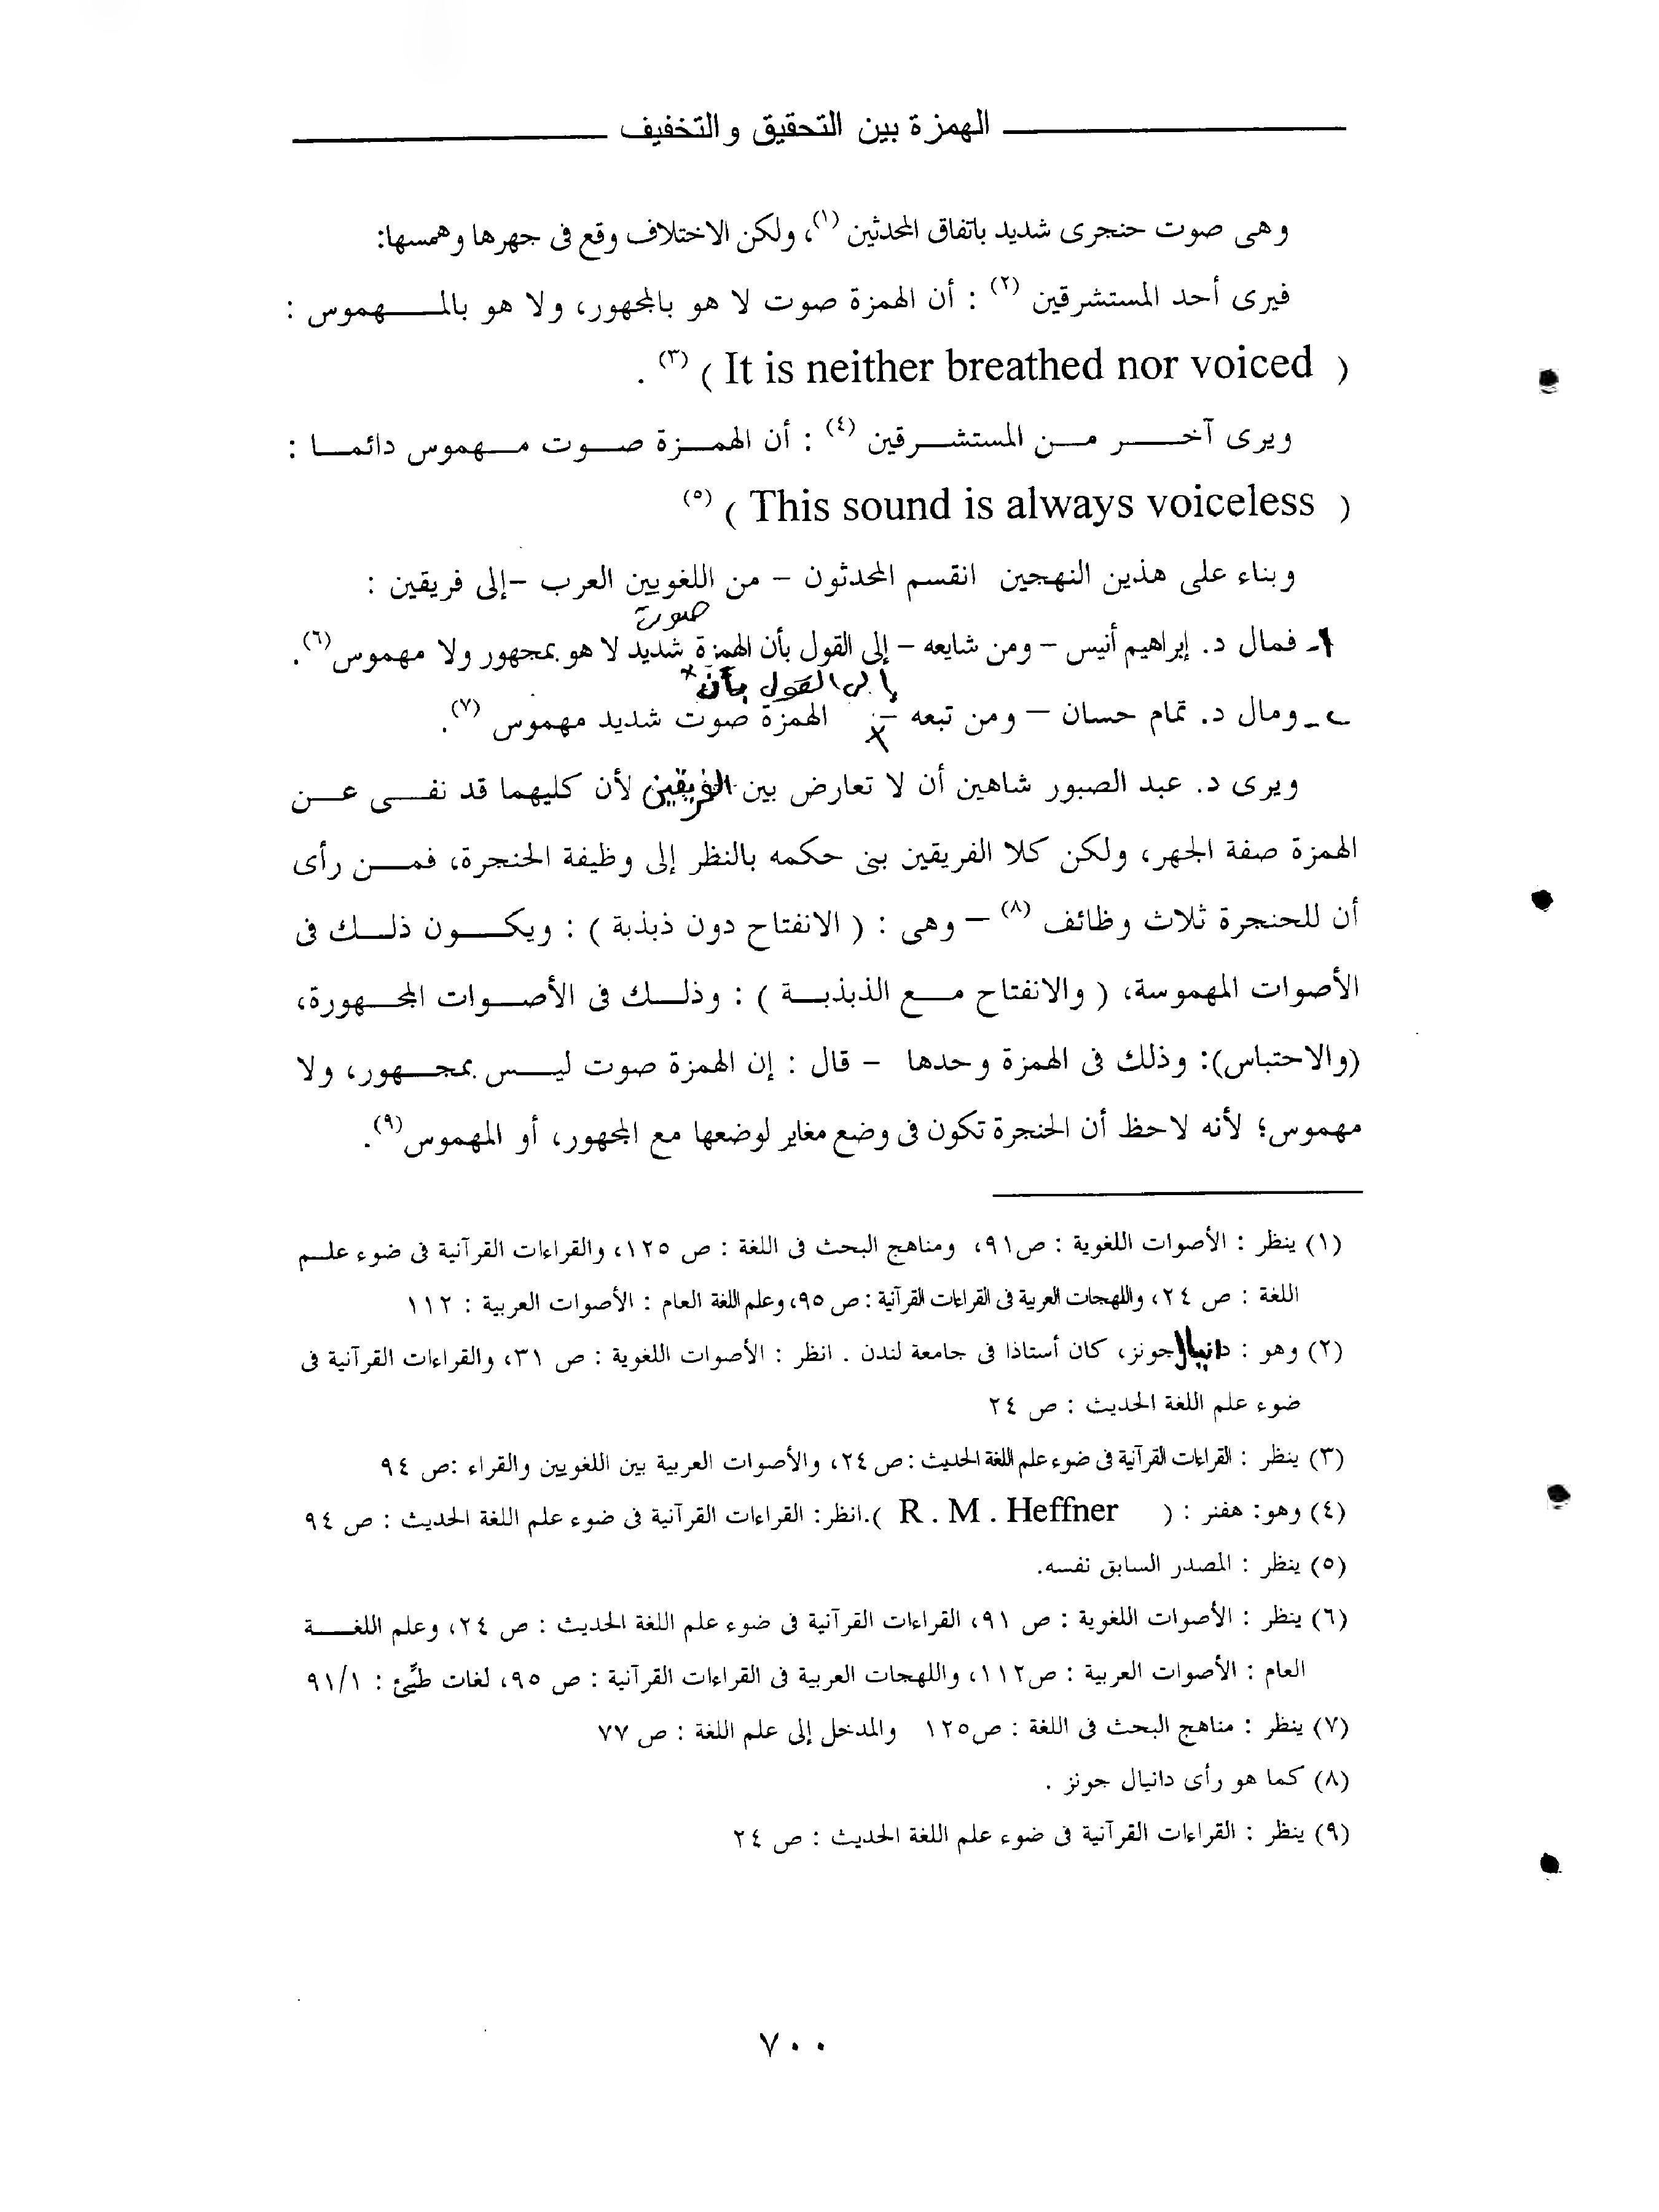 الهمزة بين التحقيق والتخفيف
وهى صوت حنجرى شديد باتفاق المحدثين (١)، ولكن الاختلاف وقع فى جهرها وهمسها:
فيرى أحد المستشرقين (٢) : أن الهمزة صوت لا هو بالمجهور، ولا هو بالمهموس :
( It is neither breathed nor voiced ) (٣) .
ويرى آخر من المستشرقين (٤) : أن الهمزة صوت مهموس دائما :
( This sound is always voiceless ) (٥)
وبناء على هذين النهجين انقسم المحدثون – من اللغويين العرب –إلى فريقين :
صوت
١- فمال د. إبراهيم أنيس – ومن شايعه – إلى القول بأن الهمزة شديد لا هو بمجهور ولا مهموس (٦).
إلى القول بأن
٢- ومال د. تمام حسان – ومن تبعه – الهمزة صوت شديد مهموس (٧).
ويرى د. عبد الصبور شاهين أن لا تعارض بين الفريقين لأن كليهما قد نفى عن
الهمزة صفة الجهر، ولكن كلا الفريقين بنى حكمه بالنظر إلى وظيفة الحنجرة، فمن رأى
أن للحنجرة ثلاث وظائف (٨) – وهى : ( الانفتاح دون ذبذبة ) : ويكون ذلك فى
الأصوات المهموسة، ( والانفتاح مع الذبذبة ) : وذلك فى الأصوات المجهورة،
(والاحتباس): وذلك فى الهمزة وحدها – قال : إن الهمزة صوت ليس بمجهور، ولا
مهموس؛ لأنه لاحظ أن الحنجرة تكون فى وضع مغاير لوضعها مع المجهور، أو المهموس (٩).
(١) ينظر : الأصوات اللغوية : ص٩١، ومناهج البحث فى اللغة : ص ١٢٥، والقراءات القرآنية فى ضوء علم
اللغة : ص ٢٤، واللهجات العربية فى القراءات القرآنية : ص ٩٥، وعلم اللغة العام : الأصوات العربية : ١١٢
(٢) وهو : دانيال جونز، كان أستاذا فى جامعة لندن . انظر : الأصوات اللغوية : ص ٣١، والقراءات القرآنية فى
ضوء علم اللغة الحديث : ص ٢٤
(٣) ينظر : القراءات القرآنية فى ضوء علم اللغة الحديث : ص ٢٤، والأصوات العربية بين اللغويين والقراء :ص ٩٤
(٤) وهو: هفنر : ( R . M . Heffner ).انظر: القراءات القرآنية فى ضوء علم اللغة الحديث : ص ٩٤
(٥) ينظر : المصدر السابق نفسه.
(٦) ينظر : الأصوات اللغوية : ص ٩١، القراءات القرآنية فى ضوء علم اللغة الحديث : ص ٢٤، وعلم اللغة
العام : الأصوات العربية : ص١١٢، واللهجات العربية فى القراءات القرآنية : ص ٩٥، لغات طيِّئ : ٩١/١
(٧) ينظر : مناهج البحث فى اللغة : ص١٢٥ والمدخل إلى علم اللغة : ص ٧٧
(٨) كما هو رأى دانيال جونز .
(٩) ينظر : القراءات القرآنية فى ضوء علم اللغة الحديث : ص ٢٤
٧٠٠